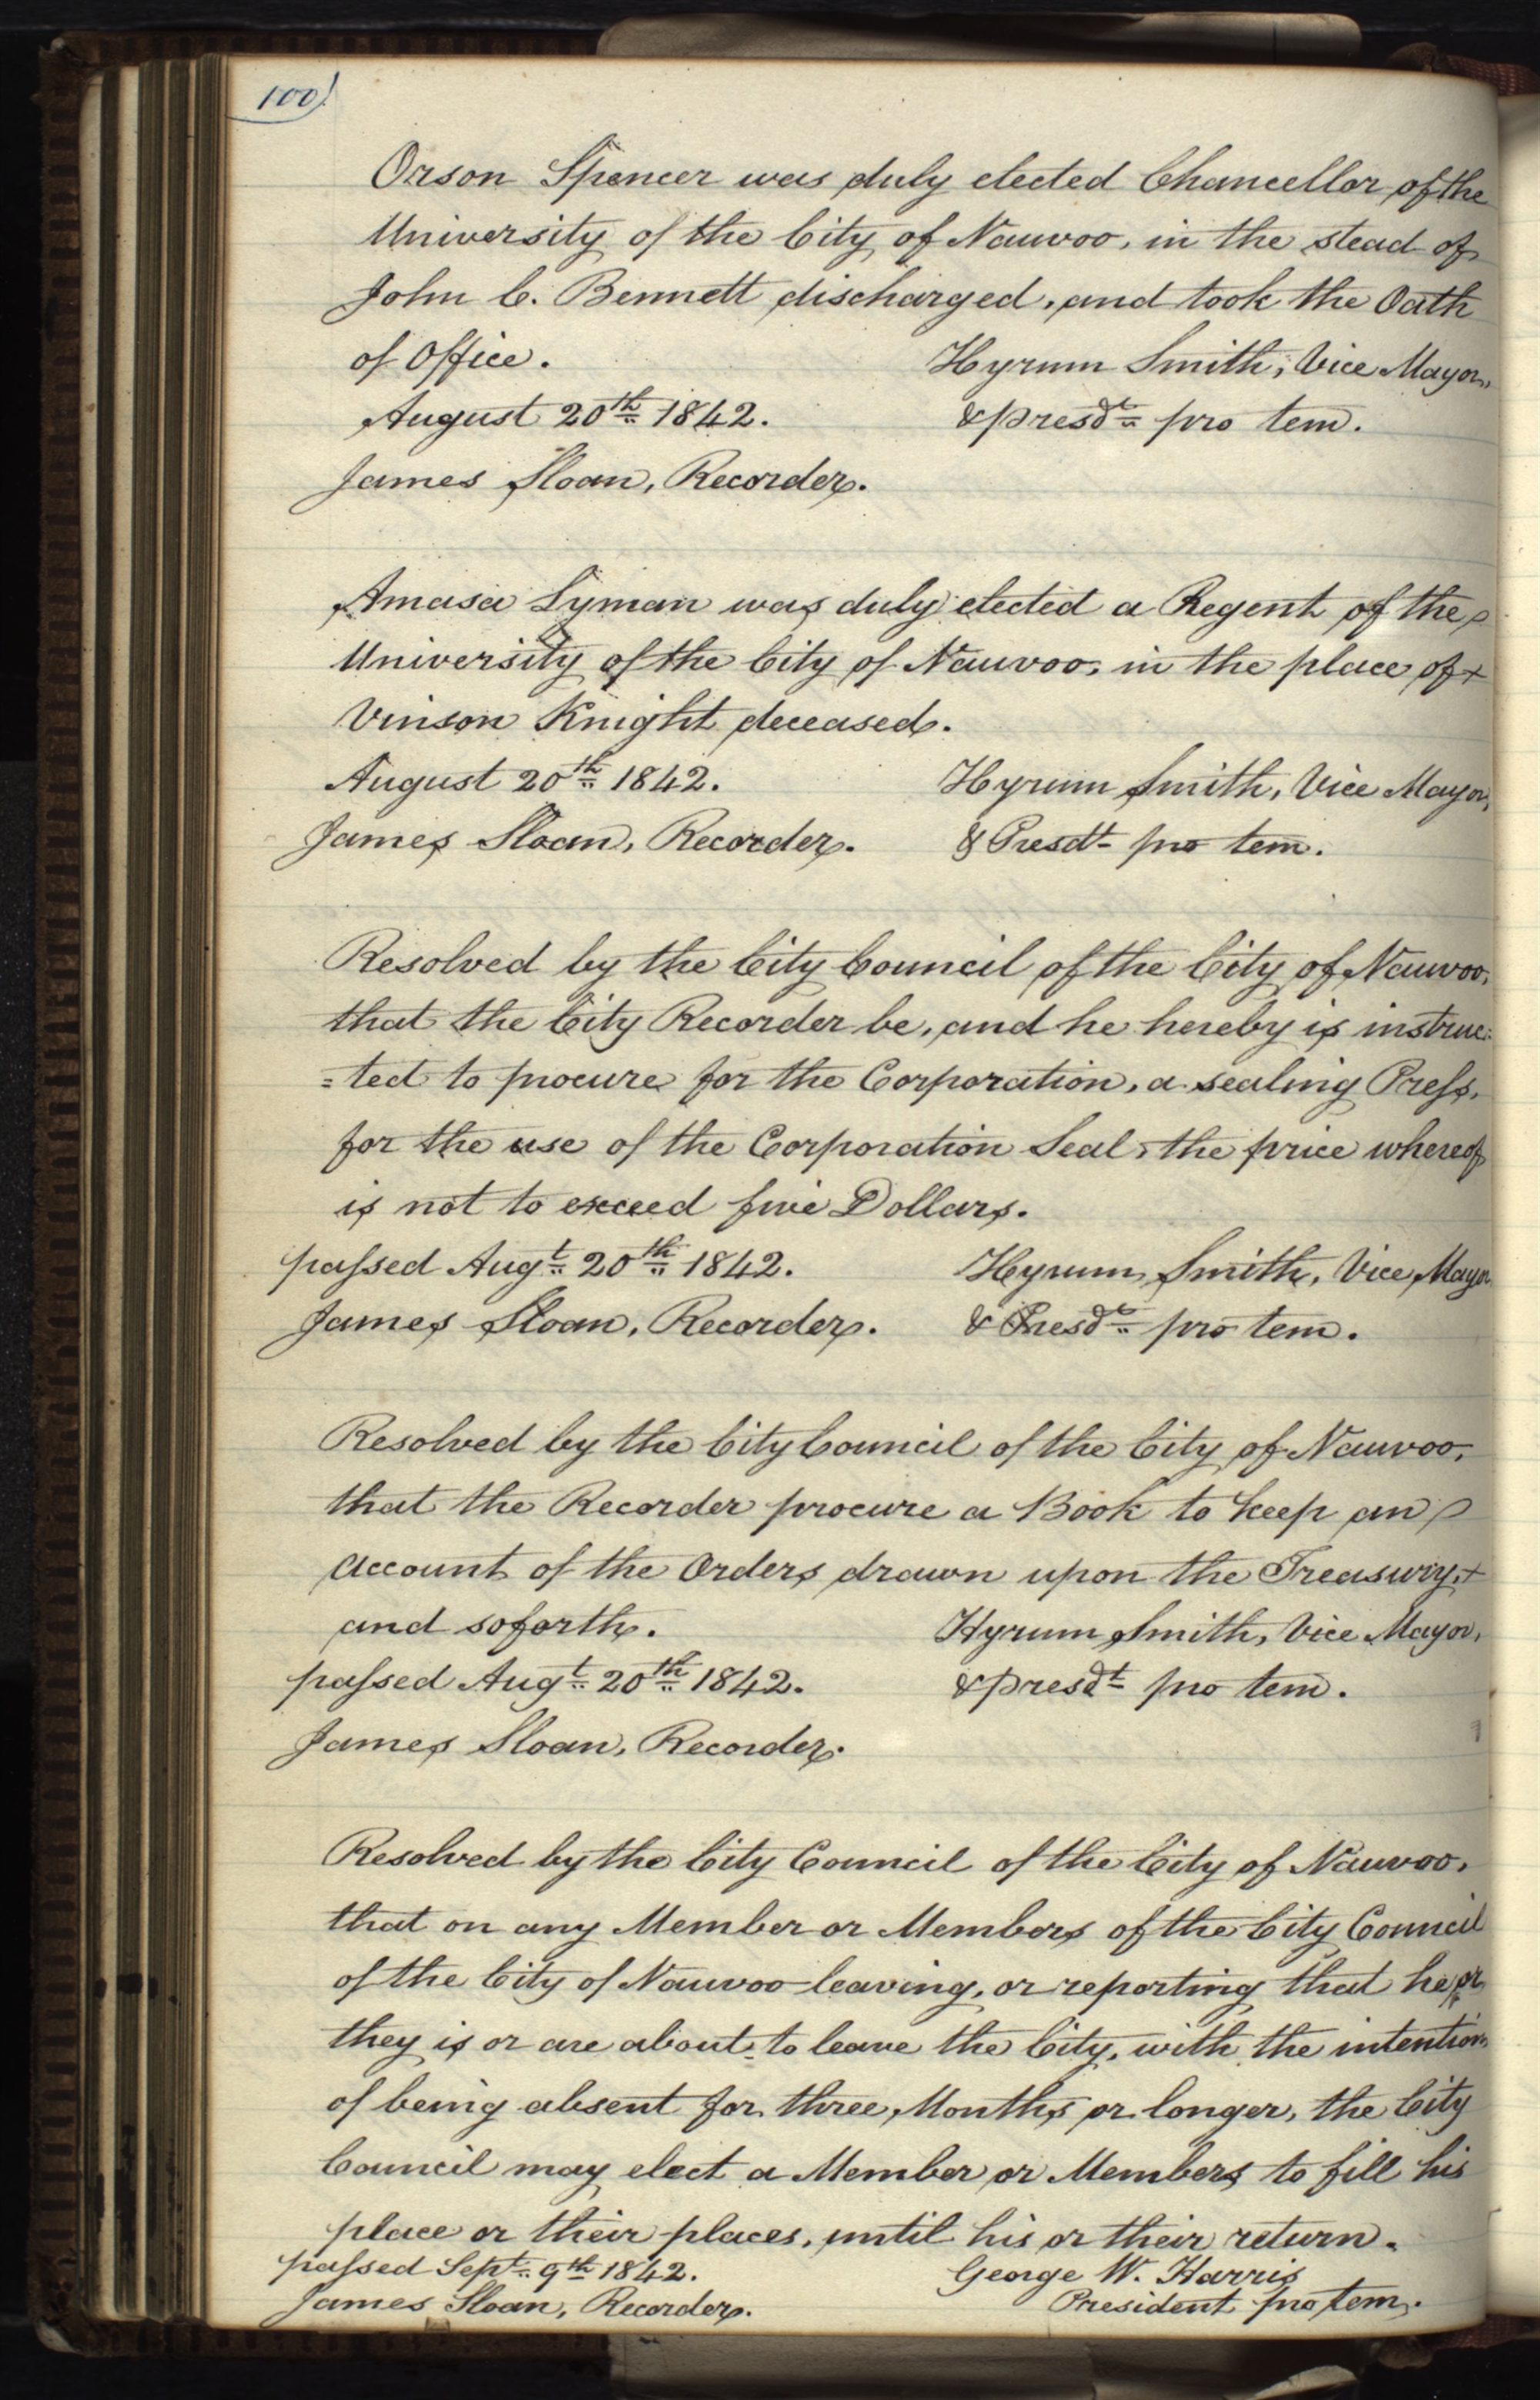 100)
Orson Spencer was duly elected Chancellor of the
University of the City of Nauvoo, in the stead of
John C. Bennett discharged, and took the Oath
of Office. Hyrum Smith, Vice Mayor,
August 20th 1842. & presdt pro tem.
James Sloan, Recorder.
Amasa Lyman was duly elected a Regent of the
University of the City of Nauvoo, in the place of
Vinson Knight deceased.
August 20th 1842. Hyrum Smith, Vice Mayor,
James Sloan, Recorder. & Presdt pro tem.
Resolved by the City Council of the City of Nauvoo,
that the City Recorder be, and he hereby is instruc=
=ted to procure for the Corporation, a sealing Press,
for the use of the Corporation Seal, the price whereof
is not to exceed five Dollars.
passed Augt 20th 1842. Hyrum Smith, Vice Mayor
James Sloan, Recorder. & Presdt pro tem.
Resolved by the City Council of the City of Nauvoo,
that the Recorder procure a Book to keep an
account of the Orders drawn upon the Treasury,
and soforth. Hyrum Smith, Vice Mayor,
passed Augt 20th 1842. & presdt pro tem.
James Sloan, Recorder.
Resolved by the City Council of the City of Nauvoo,
that on any Member or Members of the City Council
of the City of Nauvoo leaving, or reporting that he or
they is or are about to leave the City, with the intention
of being absent for three Months or longer, the City
Council may elect a Member or Members to fill his
place or their places, until his or their return.
passed Sept. 9th 1842. George W. Harris
James Sloan, Recorder. President pro tem.